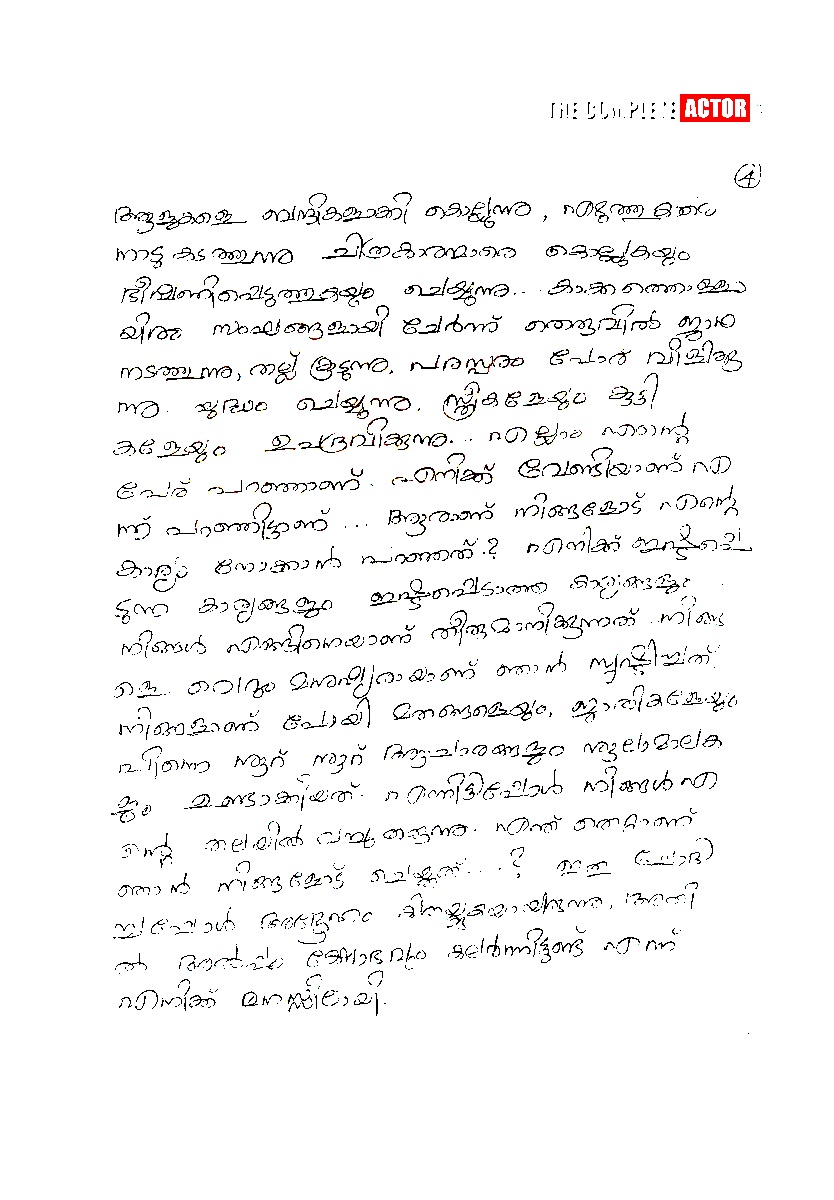 THE COMPLETE ACTOR
4
ആളുകളെ ബന്ദികളാക്കി കൊല്ലുന്നു, എഴുത്തുകാരെ
നാടു കടത്തുന്നു ചിത്രകാരന്മാരെ കൊല്ലുകയും
ഭീഷണിപ്പെടുത്തുകയും ചെയ്യുന്നു... കാക്കത്തൊള്ളാ
യിരം സംഘങ്ങളായി ചേർന്ന് തെരുവിൽ ജാഥ
നടത്തുന്നു, തല്ല് കൂടുന്നു. പരസ്പരം പോര് വിളിക്കു
ന്നു. യുദ്ധം ചെയ്യുന്നു. സ്ത്രീകളേയും കുട്ടി
കളേയും ഉപദ്രവിക്കുന്നു... എല്ലാം എന്റെ
പേര് പറഞ്ഞാണ്. എനിക്ക് വേണ്ടിയാണ് എ
ന്ന് പറഞ്ഞിട്ടാണ്... ആരാണ് നിങ്ങളോട് എന്റെ
കാര്യം നോക്കാൻ പറഞ്ഞത്? എനിക്ക് ഇഷ്ടപ്പെ
ടുന്ന കാര്യങ്ങളും ഇഷ്ടപ്പെടാത്ത കാര്യങ്ങളും
നിങ്ങൾ എങ്ങിനെയാണ് തീരുമാനിക്കുന്നത്. നിങ്ങ
ളെ വെറും മനുഷ്യരായാണ് ഞാൻ സൃഷ്ടിച്ചത്.
നിങ്ങളാണ് പോയി മതങ്ങളെയും, ജാതികളേയും
പിന്നെ നൂറ് നൂറ് ആചാരങ്ങളും നൂലാമാലക
ളും ഉണ്ടാക്കിയത്. എന്നിട്ടിപ്പോൾ നിങ്ങൾ എ
ന്റെ തലയിൽ വച്ചു തരുന്നു. എന്ത് തെറ്റാണ്
ഞാൻ നിങ്ങളോട് ചെയ്തത്....? ഇത് ചോദി
ച്ചപ്പോൾ അദ്ദേഹം കിതയ്ക്കുകയായിരുന്നു. അതി
ൽ അൽപ്പം ക്ഷോഭവും കലർന്നിട്ടുണ്ട് എന്ന്
എനിക്ക് മനസ്സിലായി.